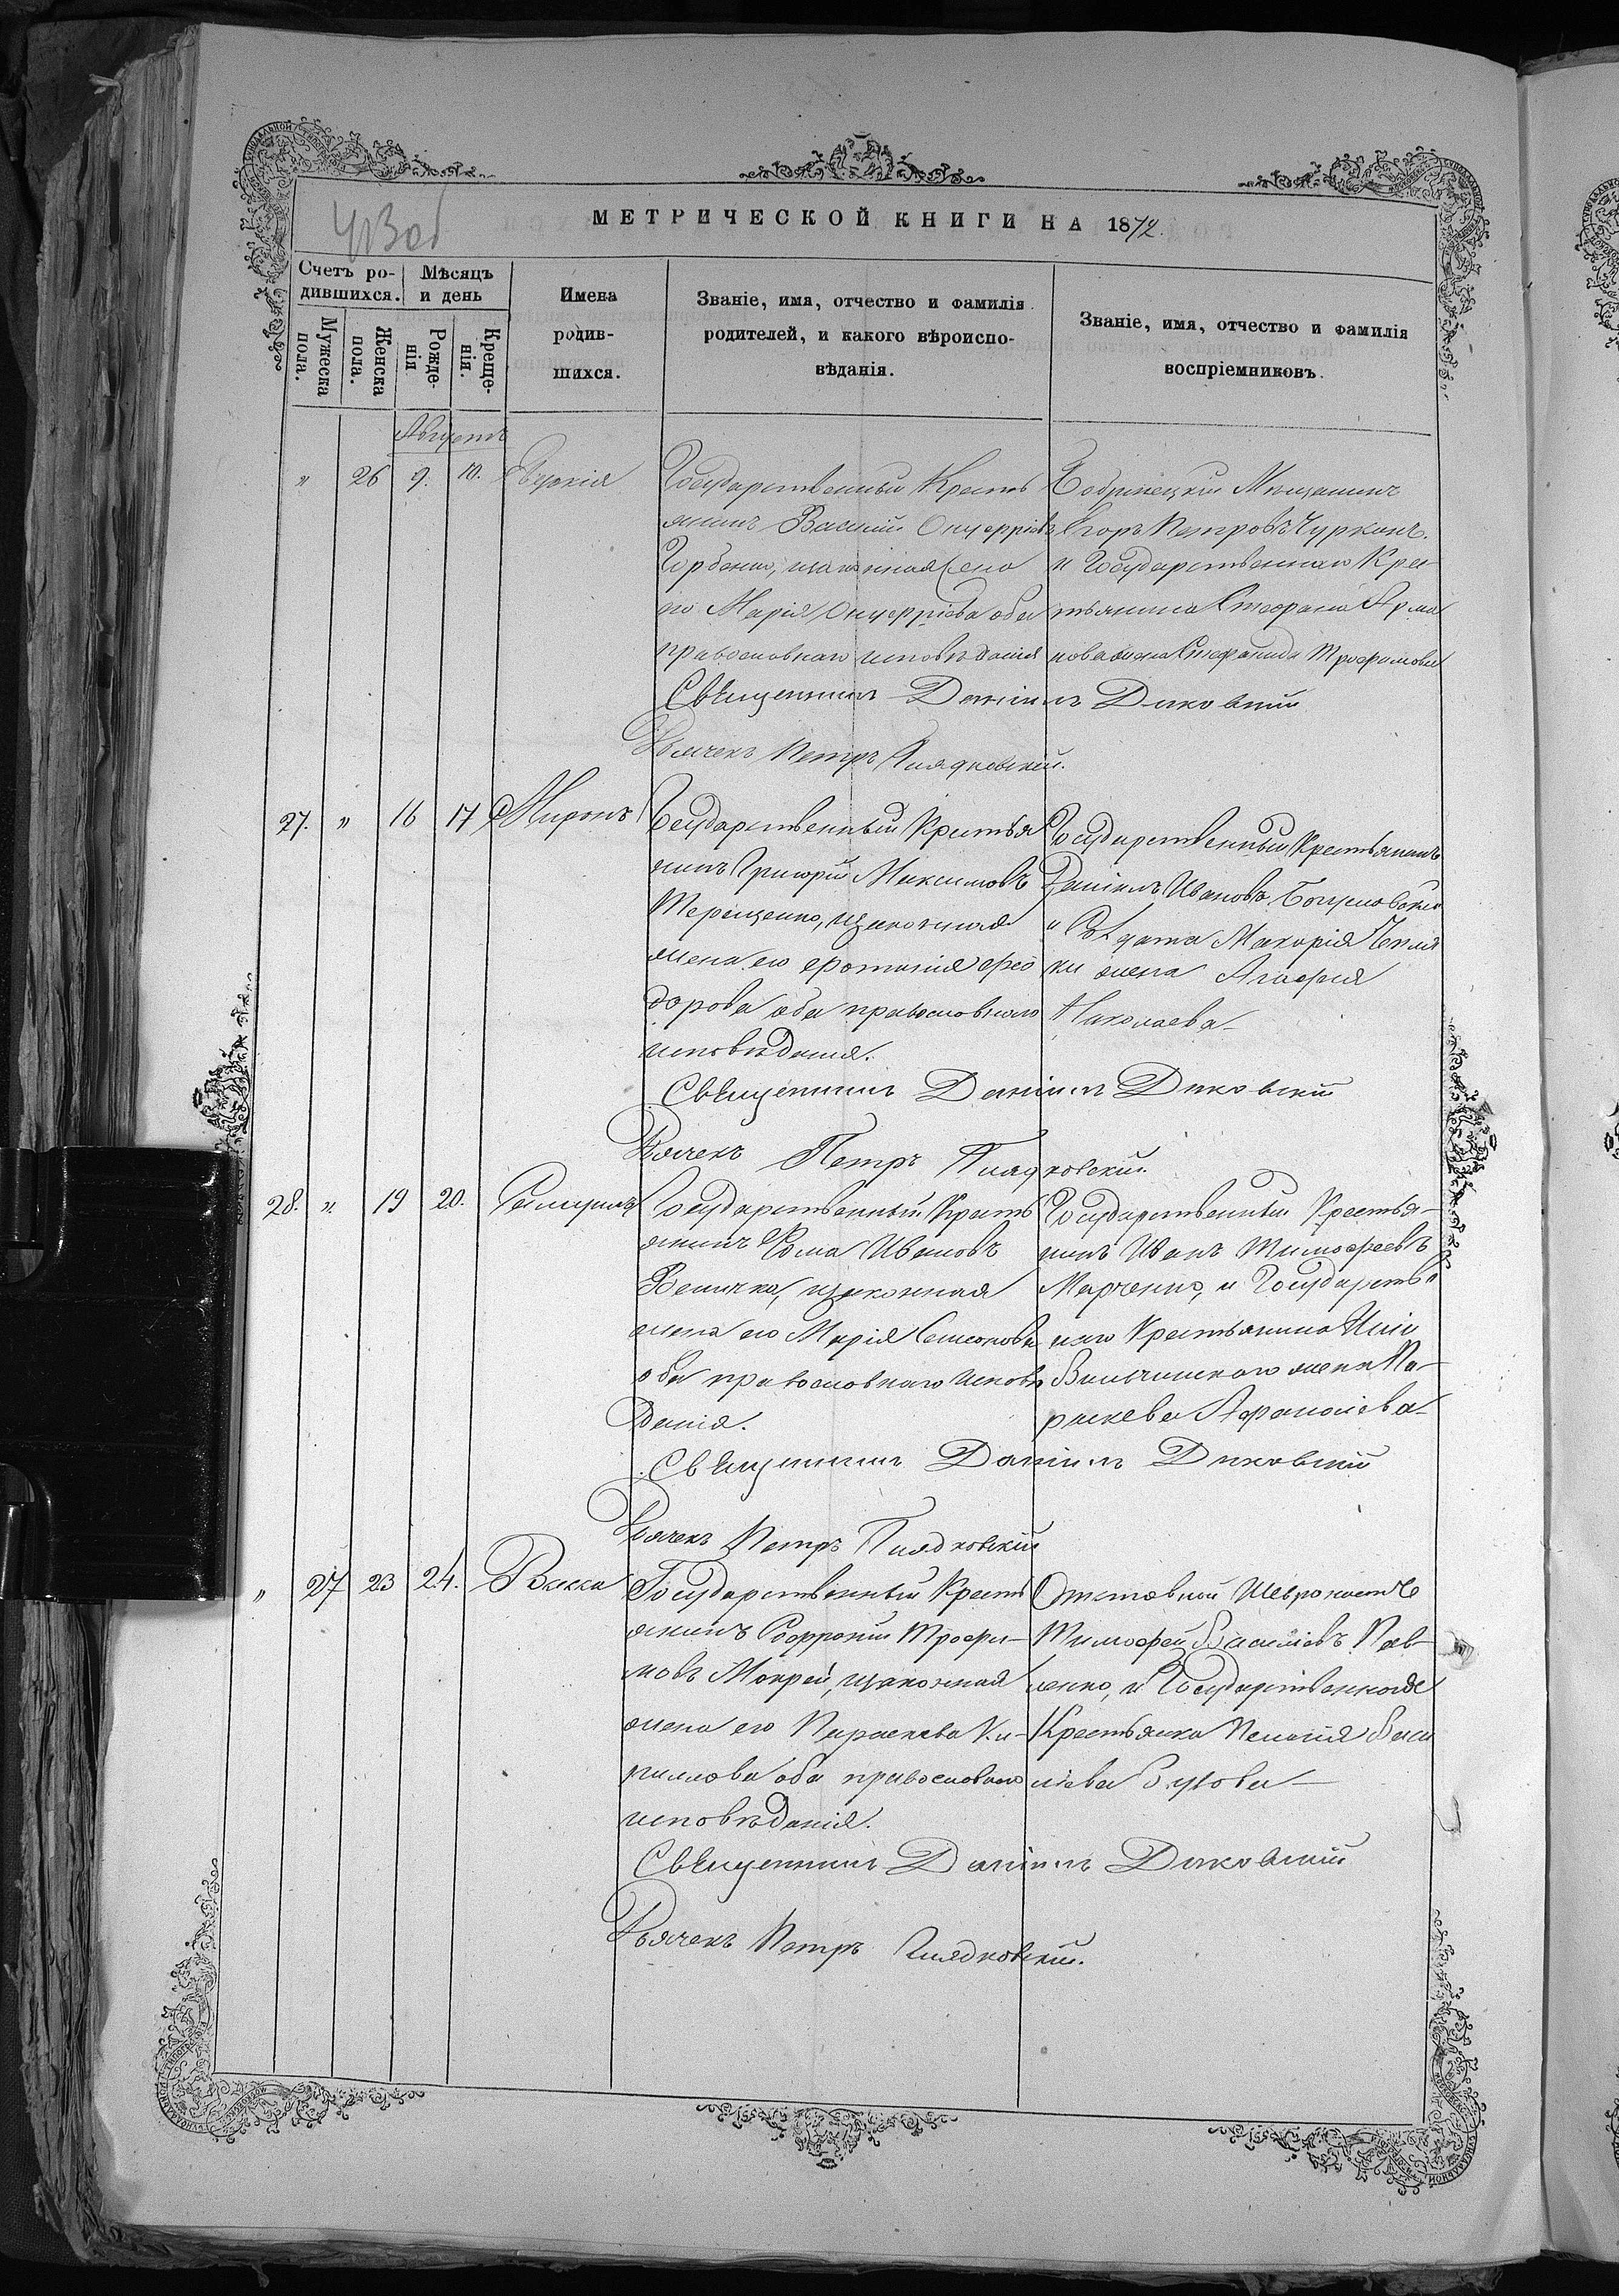 МЕТРИЧЕСКОЙ КНИГИ НА 1872.
Счетъ ро-
дившихся.
Мѣсяцъ
и день
Имена
родив-
шихся.
Званіе, имя, отчество и фамилія
родителей, и какого вѣроиспо-
вѣданія.
Званіе, имя, отчество и фамилія
воспріемниковъ.
Мужеска
пола.
Женска
пола.
Рожде-
нія
Креще-
нія.
Августъ
" 26 9. 10.
Государственный Кресть
янинъ Василій Онуфріевъ
Горбенко, законная жена
его Марія Онуфріева оба
православнаго исповѣданія
Бобринецкій Мѣщанинъ
Егоръ Петровъ Чурканъ.
и Государственнаго Кре-
стьянина Стефана
жена Стефанида Трофимова
Священникъ Даніилъ Диковскій
Дьячекъ Петръ Пиядковскій.
27. " 16 17 Миронъ
Государственный Крестья
нинъ Григорій Максимовъ
Терещенко, изаконная
жена его Фотинія Фео
дорова оба православнаго
исповѣданія.
Государственный Крестьянинъ
Даніилъ Ивановъ
и Солдата Макарія
ки жена Агафія
Николаева
Священникъ Даніилъ Диковскій
Дьячекъ Петръ Пиядковскій.
28. " 19 20.
Государственный Кресть
янинъ Фома Ивановъ
Величко, изаконная
жена его Марія Семенова
оба православнаго исповѣ
данія.
Государственный Крестья-
нинъ Иванъ Тимофеевъ
Марченко, и Государств
наго Крестьянина
жена Па-
раскева Афанасіева
Священникъ Даніилъ Диковскій
Дьячекъ Петръ Пиядковскій
" 27 23 24. Васса
Государственный Кресть
янинъ Софроній Трофи-
мовъ Мокрей, изаконная
жена его Параскева Ки-
риллова оба православнаго
исповѣданія.
Отставной
Тимофей Василіевъ Пав-
ленко, и Государственная
Крестьянка Пелагія Васи
ліева
Священникъ Даніилъ Диковскій
Дьячекъ Петръ Пиядковскій.